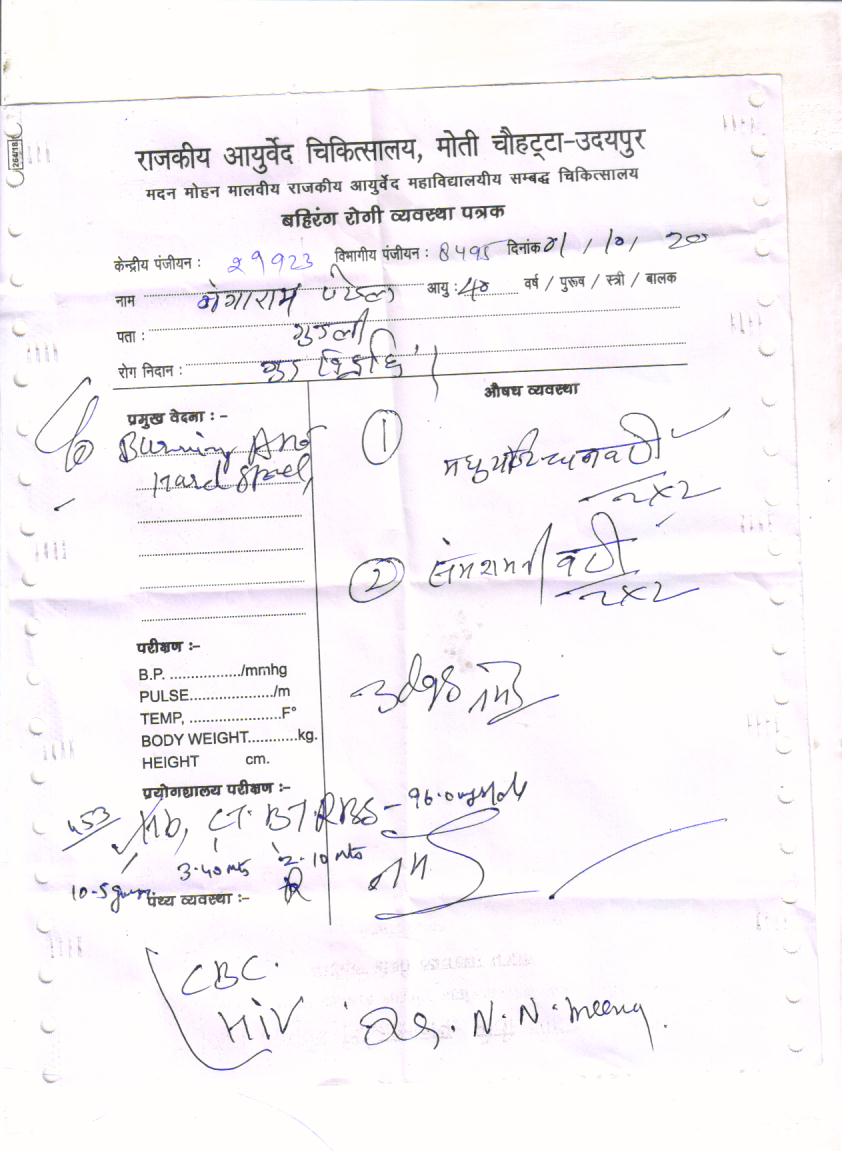 264/18
राजकीय आयुर्वेद चिकित्सालय, मोती चौहट्टा-उदयपुर
मदन मोहन मालवीय राजकीय आयुर्वेद महाविद्यालयीय सम्बद्ध चिकित्सालय
बहिरंग रोगी व्यवस्था पत्रक
केन्द्रीय पंजीयन : 29923 विभागीय पंजीयन : 8495 दिनांक 01/10/20
नाम पटेल आयु : 40 वर्ष / पुरूष / स्त्री / बालक
पता :
रोग निदान :
औषध व्यवस्था
प्रमुख वेदना :- C/o
Burning And
Hard Stool
1
2x2
2 संशमनी वटी
2x2
परीक्षण :-
B.P. ................./mmhg
PULSE..................../m
TEMP, .....................F°
BODY WEIGHT............kg.
HEIGHT cm.
प्रयोगशालय परीक्षण :-
453 Hb, CT. BT. RBS - 96.0
3-40 mts 2-10 mts
10.5 gm
पथ्य व्यवस्था :-
CBC.
HIV
N. N. Meena.